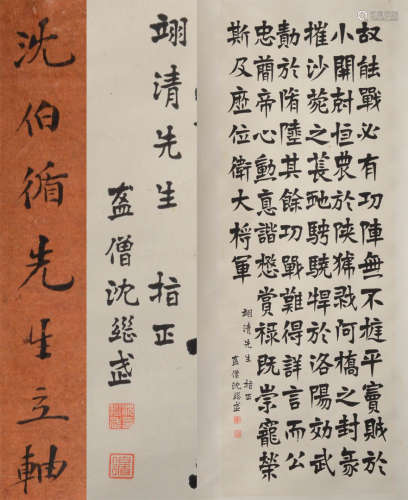 故能戰必有功陣無不摧平竇賊於
小關尅恒農於陝猗戮河橋之封豕
摧沙菀之長虵騁驍捍於洛陽効武
勳於隋陸其餘功戰難得詳言而公
忠蕳帝心勳意諧懋賞祿既崇寵榮
斯及歷位衛大將軍
翊清先生 指正
僧沈繼武
翊清先生 指正
僧沈繼武
沈伯循先生立軸